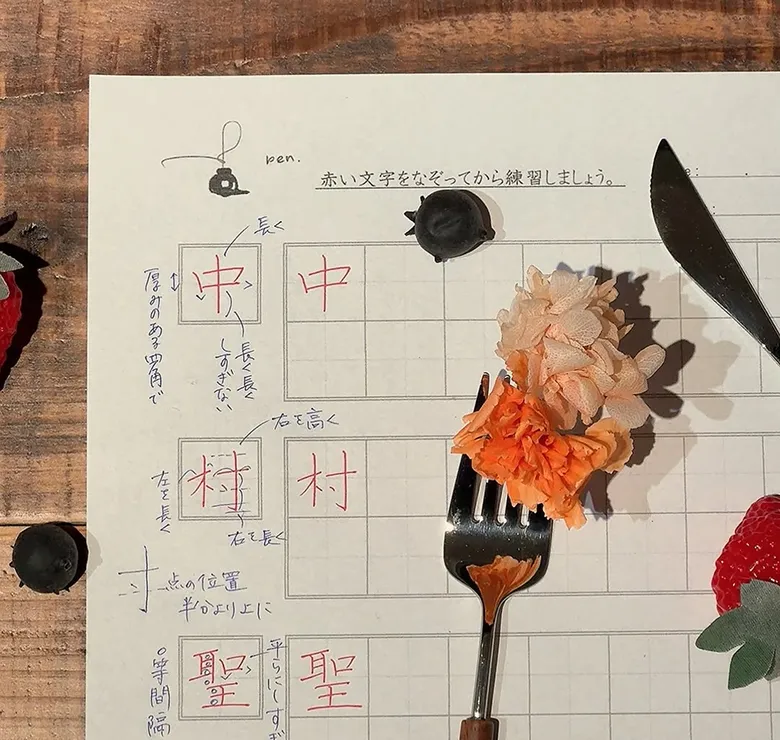 pen.
赤い文字をなぞってから練習しましょう。
e:
長く
中
中
厚みのある四角で
長く長く
しすぎない
右を高く
村
村
左を長く
右を長く
点の位置
半分より上に
聖
聖
等間隔
平らにしすぎ